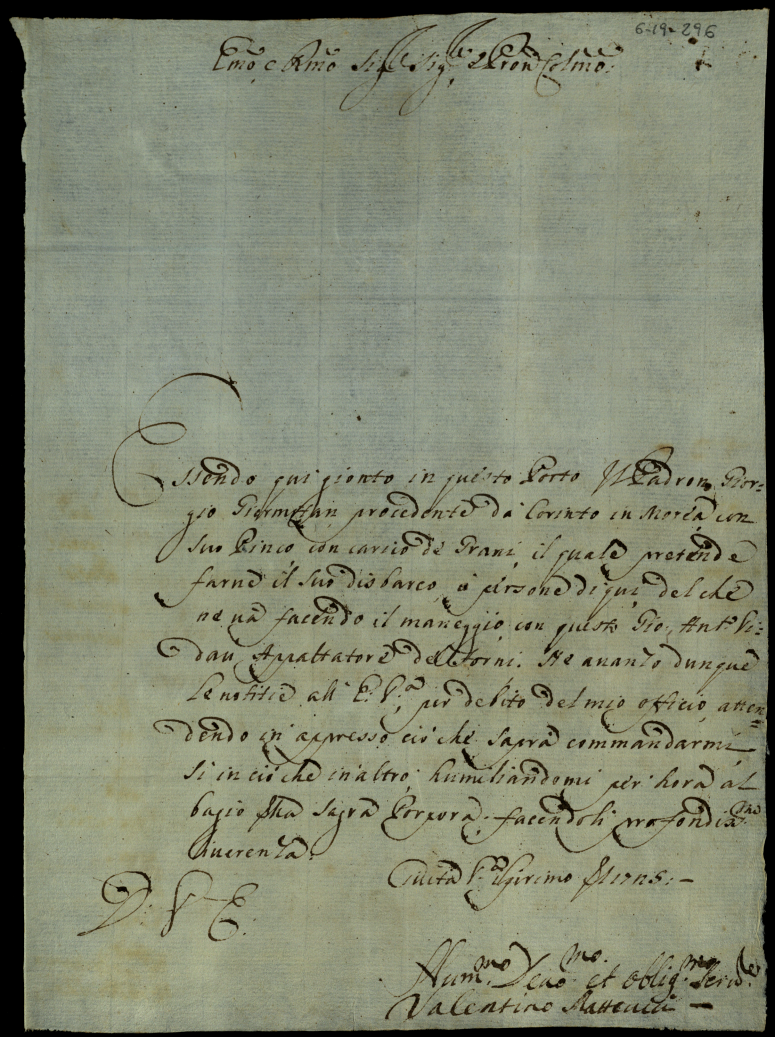 6-19-296
Emo, e Rmo Sigre Sigre e Pron Colmo:
Essendo qui gionto in questo Porto Il Padron Gior=
gio procedente da Corinto in Morea con
suo Pinco con carico de Grani, il quale pretende
farne il suo disbarco, à persone di qui, del che
ne và facendo il maneggio con questo Gio: Anto Vi=
dau Appaltatore del Forni. Ne avanzo dunque
le notitie all' E. Va, per debito del mio offitio, atten=
dendo in appresso ciò che saprà commandarmi
si in ciò che in altro, humiliandomi per hora al
bagio della Sagra Porpora, facendoli profondissma
riverenza.
Civita Va li primo
D: V: E:
Hummo Devomo et obligmo Serure
Valentino Matteucci